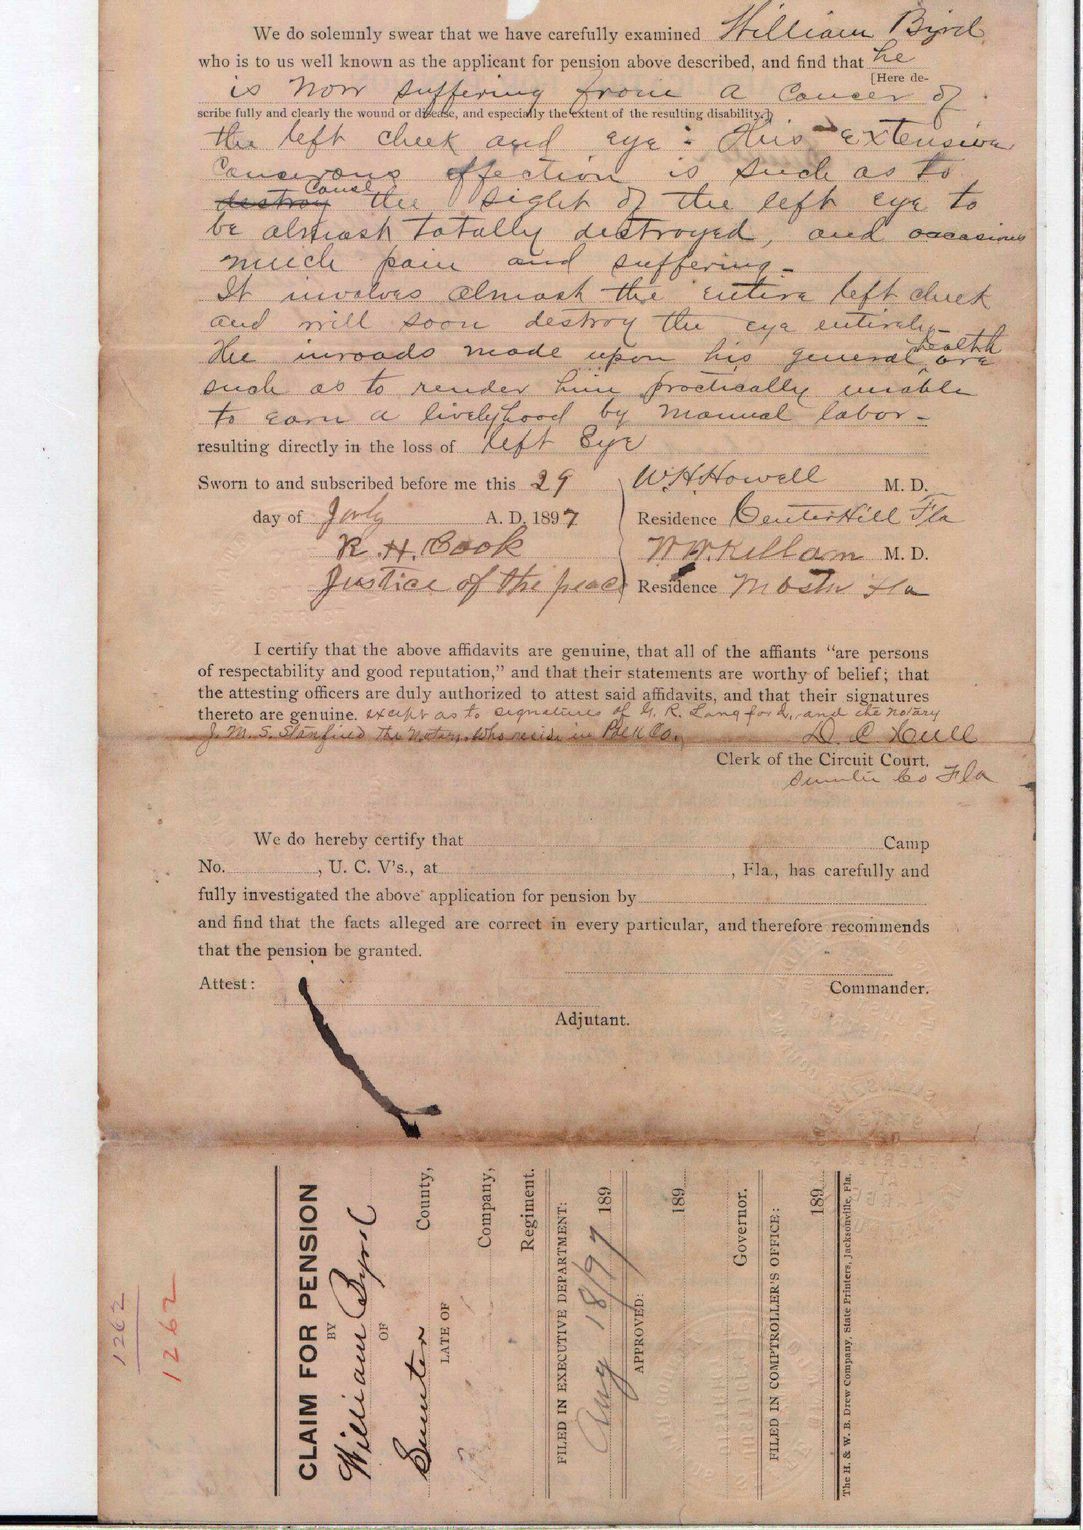 We do solemnly swear that we have carefully examined William Byrd
who is to us well known as the applicant for pension above described, and find that he
[Here de-
is now suffering from a cancer of
scribe fully and clearly the wound or disease, and especially the extent of the resulting disability.]
the left cheek and eye : This extensive
cancerous affection is such as to
destroy cause the sight of the left eye to
be almost totally destroyed, and occasions
much pain and suffering -
It involves almost the entire left cheek
and will soon destroy the eye entirely -
The inroads made upon his general health are
such as to render him practically unable
to earn a livelyhood by manual labor -
resulting directly in the loss of left Eye
Sworn to and subscribed before me this 29
day of July A. D. 1897
R. H. Cook
Justice of the peace
W. H. Howell M. D.
Residence Center Hill Fla
W. W. Kellam M. D.
Residence Fla
I certify that the above affidavits are genuine, that all of the affiants "are persons
of respectability and good reputation," and that their statements are worthy of belief; that
the attesting officers are duly authorized to attest said affidavits, and that their signatures
thereto are genuine. except as to signatures of G. R. Langford, and the notary
J. M. S. Stanfield the Notary, who reside in Polk Co. D. C. Cull
Clerk of the Circuit Court.
Sumter Co Fla
We do hereby certify that Camp
No. , U. C. V's., at , Fla., has carefully and
fully investigated the above application for pension by
and find that the facts alleged are correct in every particular, and therefore recommends
that the pension be granted.
Attest:
Commander.
Adjutant.
1262
1262
CLAIM FOR PENSION
BY
William Byrd
OF
Sumter County,
LATE OF
Company,
Regiment.
FILED IN EXECUTIVE DEPARTMENT:
Aug 18/97 189
APPROVED:
189
Governor.
FILED IN COMPTROLLER'S OFFICE:
189
The H. & W. B. Drew Company, State Printers, Jacksonville, Fla.